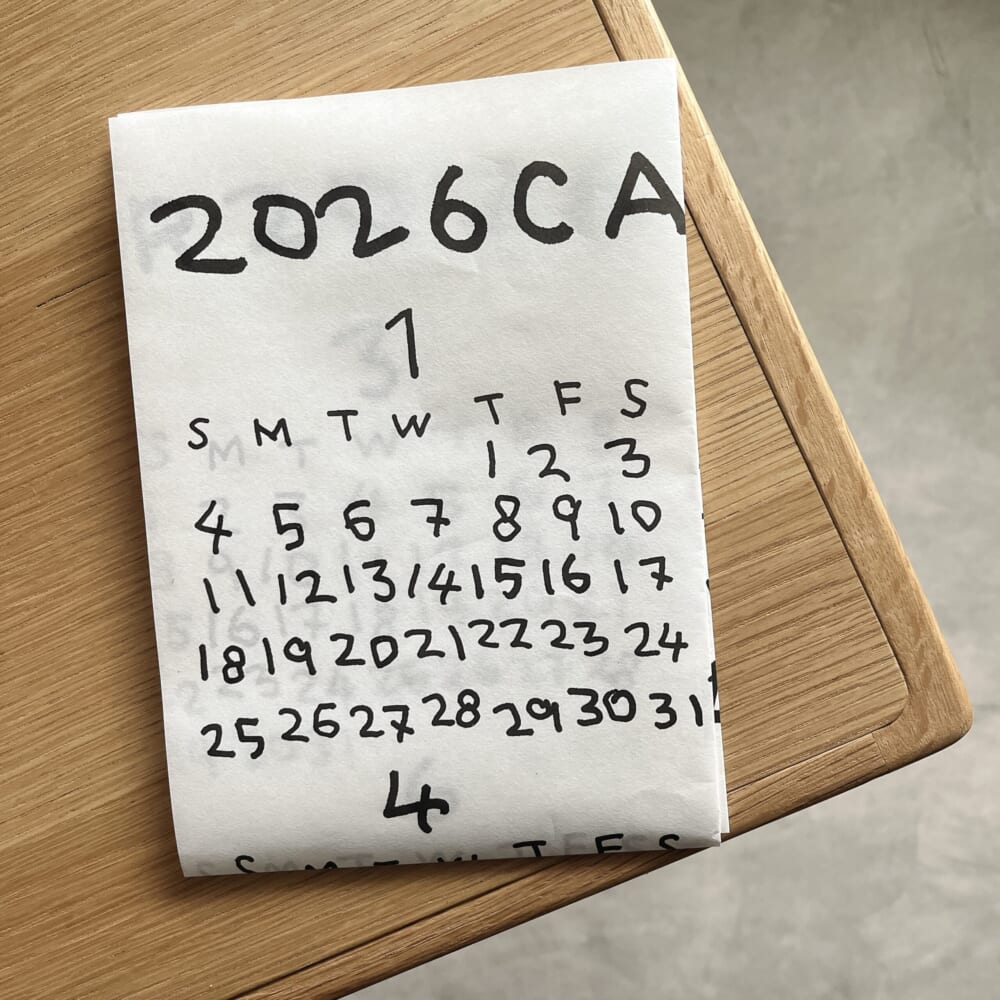 2026CA
1
S M T W T F S
1 2 3
4 5 6 7 8 9 10
11 12 13 14 15 16 17
18 19 20 21 22 23 24
25 26 27 28 29 30 31
4
S M T W T F S